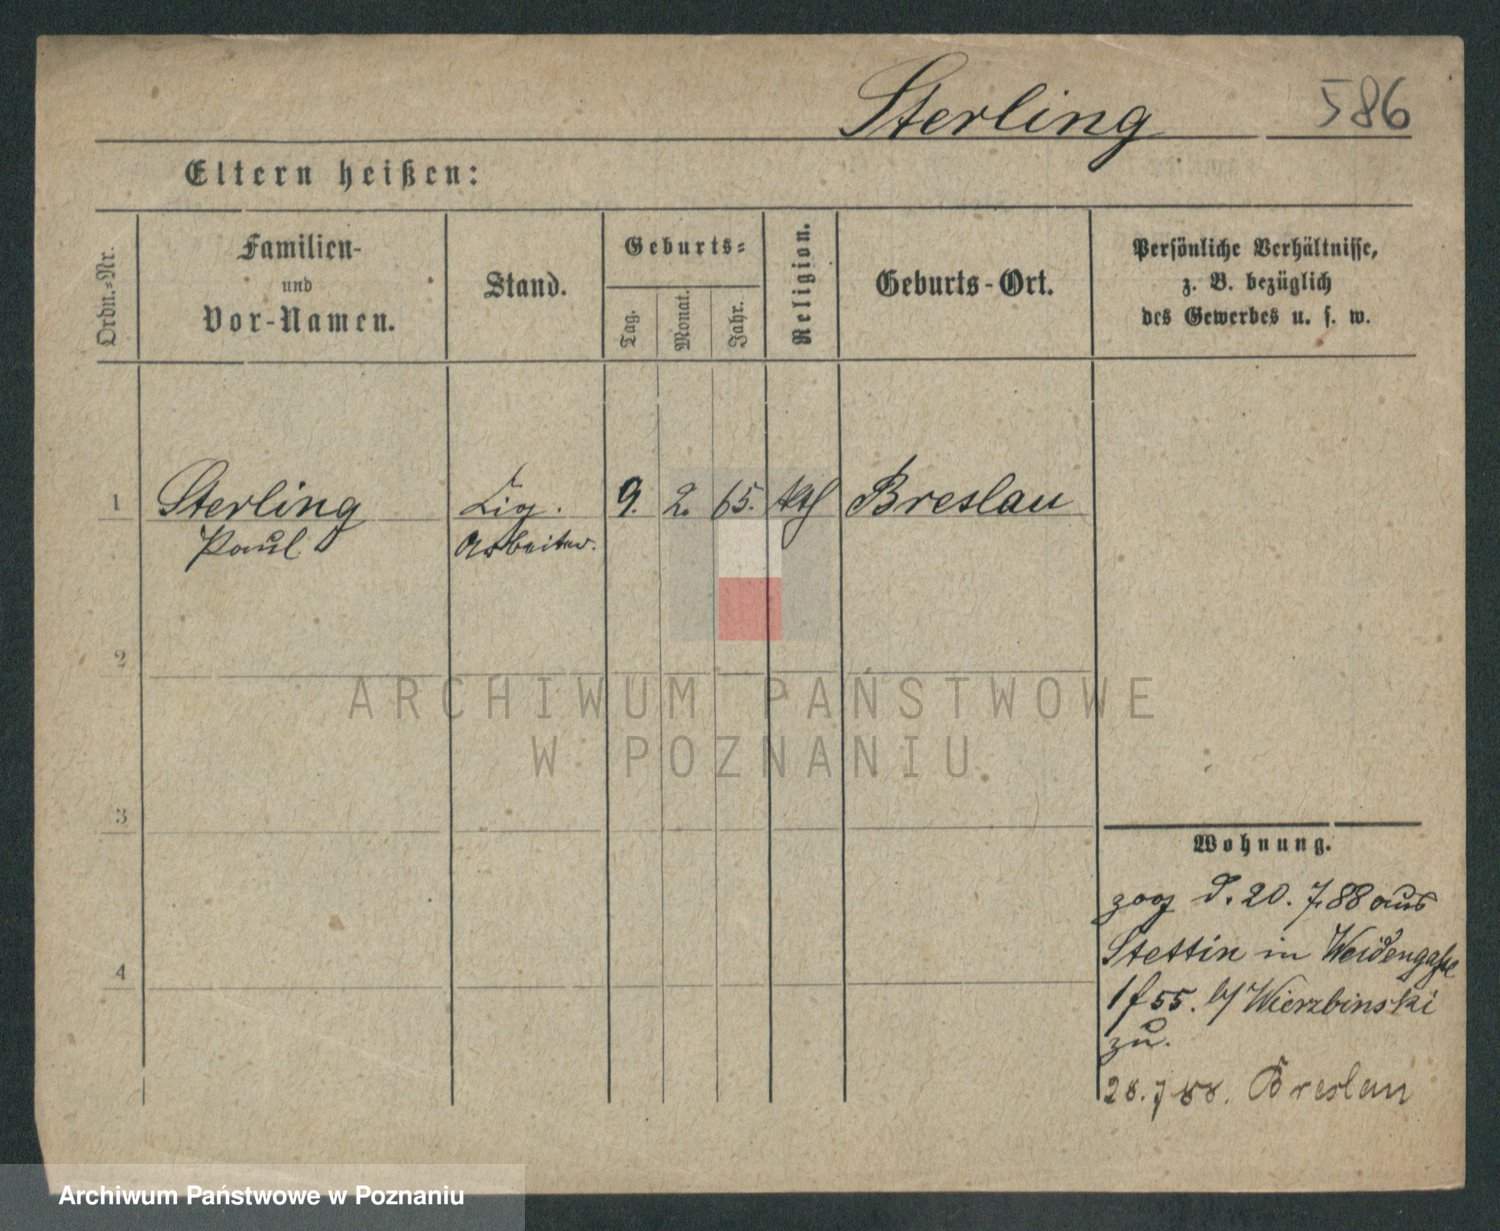 Sterling 586
Eltern heißen:
Ordn.-Nr.
Familien-
und
Vor-Namen.
Stand.
Geburts-
Tag.
Monat.
Jahr.
Religion.
Geburts-Ort.
Persönliche Verhältnisse,
z. B. bezüglich
des Gewerbes u. s. w.
1 Sterling Cig. 9. 2. 65. kth Breslau
Paul Arbeiter.
2
ARCHIWUM PAŃSTWOWE
W POZNANIU
3
Wohnung.
zog d. 20. 7. 88 aus
Stettin in Weidengasse
55. b/ Wierzbinski
zu.
28. 7 88. Breslau
4
Archiwum Państwowe w Poznaniu